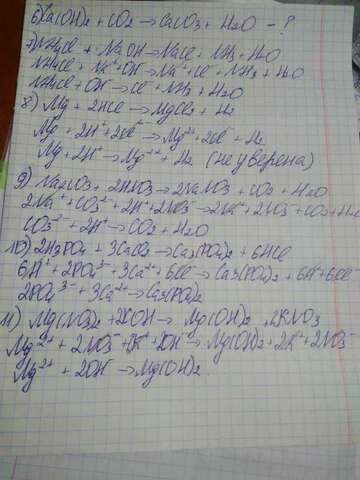 6) Ca(OH)₂ + CO₂ → CaCO₃ + H₂O - ?
7) NH₄Cl + NaOH → NaCl + NH₃ + H₂O
NH₄Cl + Na⁺ + OH⁻ → Na⁺ + Cl⁻ + NH₃ + H₂O
NH₄Cl + OH⁻ → Cl⁻ + NH₃ + H₂O
8) Mg + 2HCl → MgCl₂ + H₂
Mg + 2H⁺ + 2Cl⁻ → Mg²⁺ + 2Cl⁻ + H₂
Mg + 2H⁺ → Mg²⁺ + H₂ (не уверена)
9) Na₂CO₃ + 2HNO₃ → 2NaNO₃ + CO₂ + H₂O
2Na⁺ + CO₃²⁻ + 2H⁺ + 2NO₃⁻ → 2Na⁺ + 2NO₃⁻ + CO₂ + H₂O
CO₃²⁻ + 2H⁺ → CO₂ + H₂O
10) 2H₃PO₄ + 3CaCl₂ → Ca₃(PO₄)₂ + 6HCl
6H⁺ + 2PO₄³⁻ + 3Ca²⁺ + 6Cl⁻ → Ca₃(PO₄)₂ + 6H⁺ + 6Cl⁻
2PO₄³⁻ + 3Ca²⁺ → Ca₃(PO₄)₂
11) Mg(NO₃)₂ + 2KOH → Mg(OH)₂ 2KNO₃
Mg²⁺ + 2NO₃⁻ + 2K⁺ + 2OH⁻ → Mg(OH)₂ + 2K⁺ + 2NO₃⁻
Mg²⁺ + 2OH⁻ → Mg(OH)₂